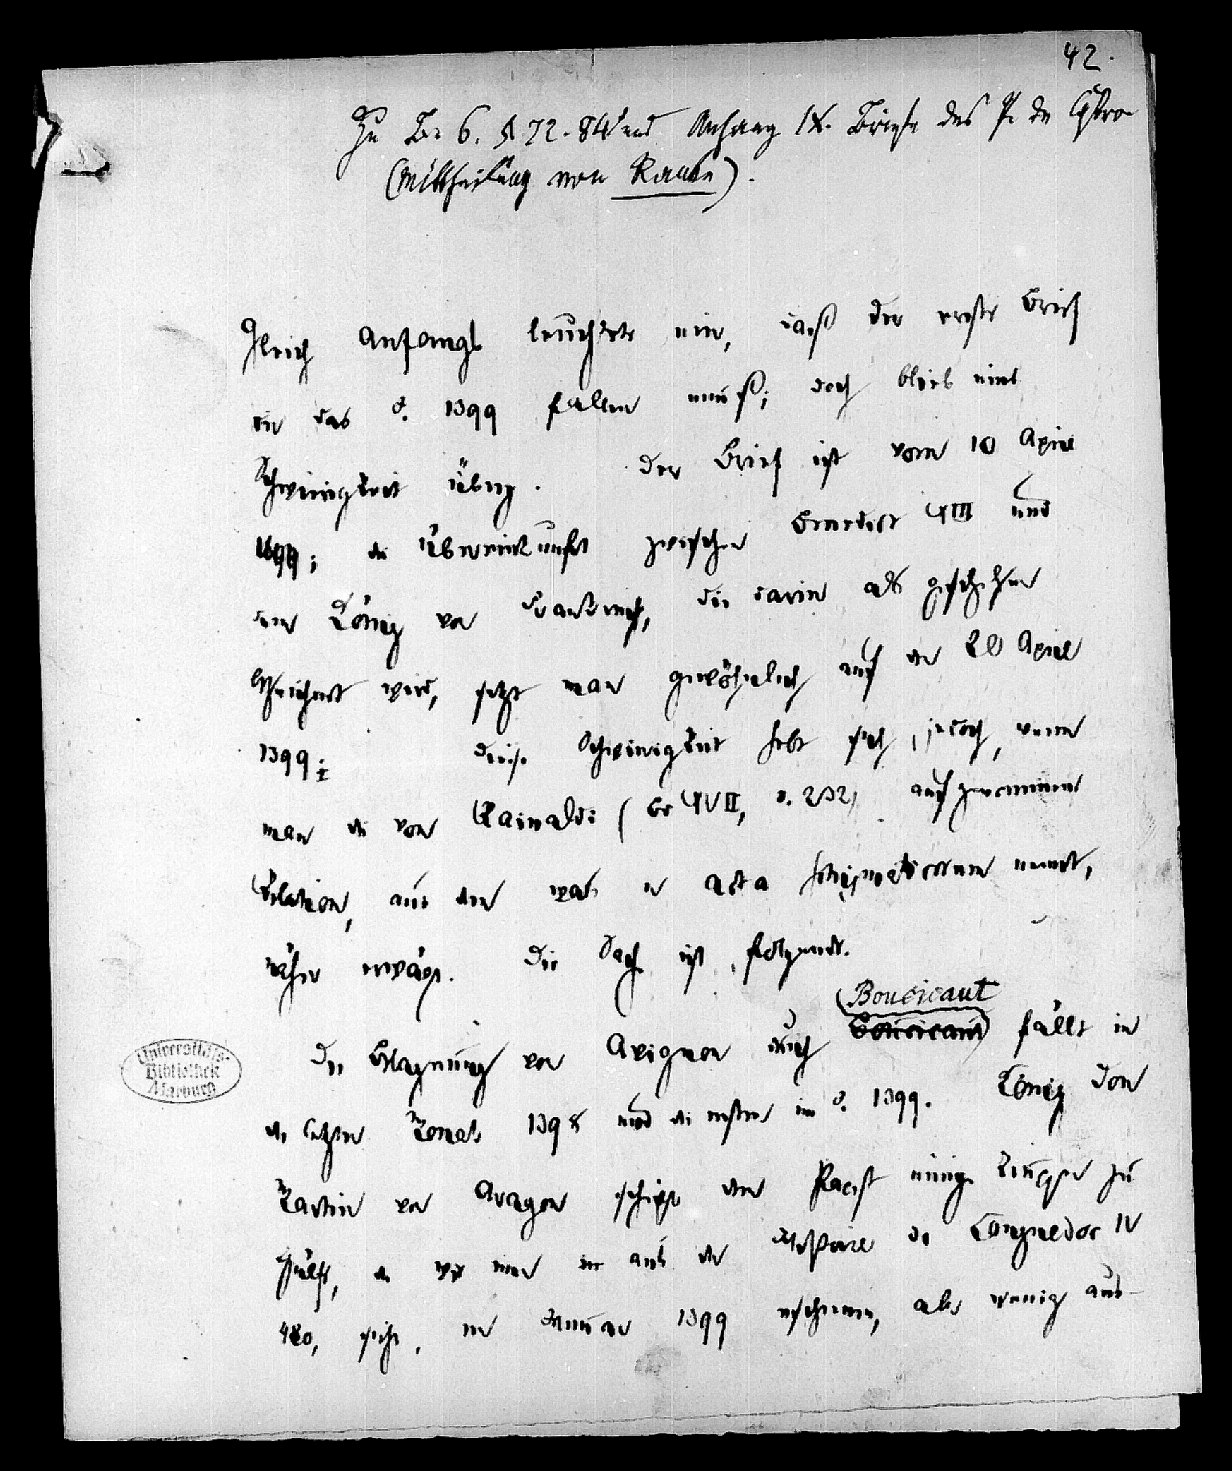 42.
Zu Be 6. S 72-84 und Anhang IX. Briefe des P. de
(Mittheilung von Ranke).
Gleich Anfangs leuchtete ein, daß der erste Brief
in das J. 1399 fallen muß; doch blieb eine
Schwierigkeit übrig. Der Brief ist vom 10 April
1399; die Übereinkunft zwischen Benedict XIII und
dem König von Frankreich, die darin als geschehen
bezeichnet wird, setzt man gewöhnlich auf den 20 April
1399: Diese Schwierigkeit hebt sich jedoch, wenn
man die von Rainaldi (Bd XVII, S. 232) aufgenommene
Relation, aus den was er acta schismaticorum nennt,
näher erwägt. Die Sache ist folgende.
Boucicaut
Die Belagerung von Avignon durch fällt in
die letzten Monate 1398 und die ersten im J. 1399. König Don
Martin von Aragon schickte dem Papst einige Truppen zu
Hülfe, die wie man aus der Histoire de Languedoc IV
sieht, im Januar 1399 erschienen, aber wenig aus-
Universitäts-
Bibliothek
Marburg